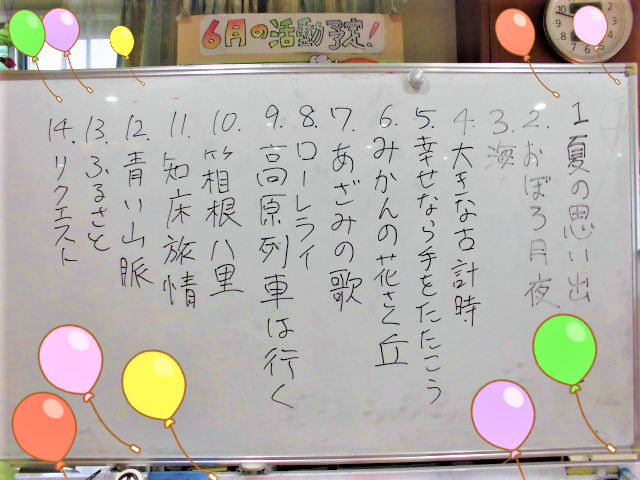 6月の活動予定!
1 夏の思い出
2. おぼろ月夜
3. 海
4. 大きな古計時
5. 幸せなら手をたたこう
6. みかんの花さく丘
7. あざみの歌
8. ローレライ
9. 高原列車は行く
10. 箱根八里
11. 知床旅情
12. 青い山脈
13. ふるさと
14. リクエスト